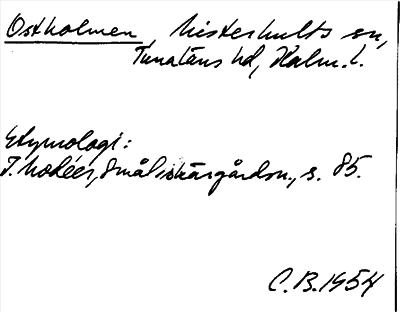 Ostholmen, Misterhults sn,
Tunaläns hd, Kalm. l.
Etymologi:
I. Modéer, Smål. skärgårdsn., s. 85.
C.B. 1954